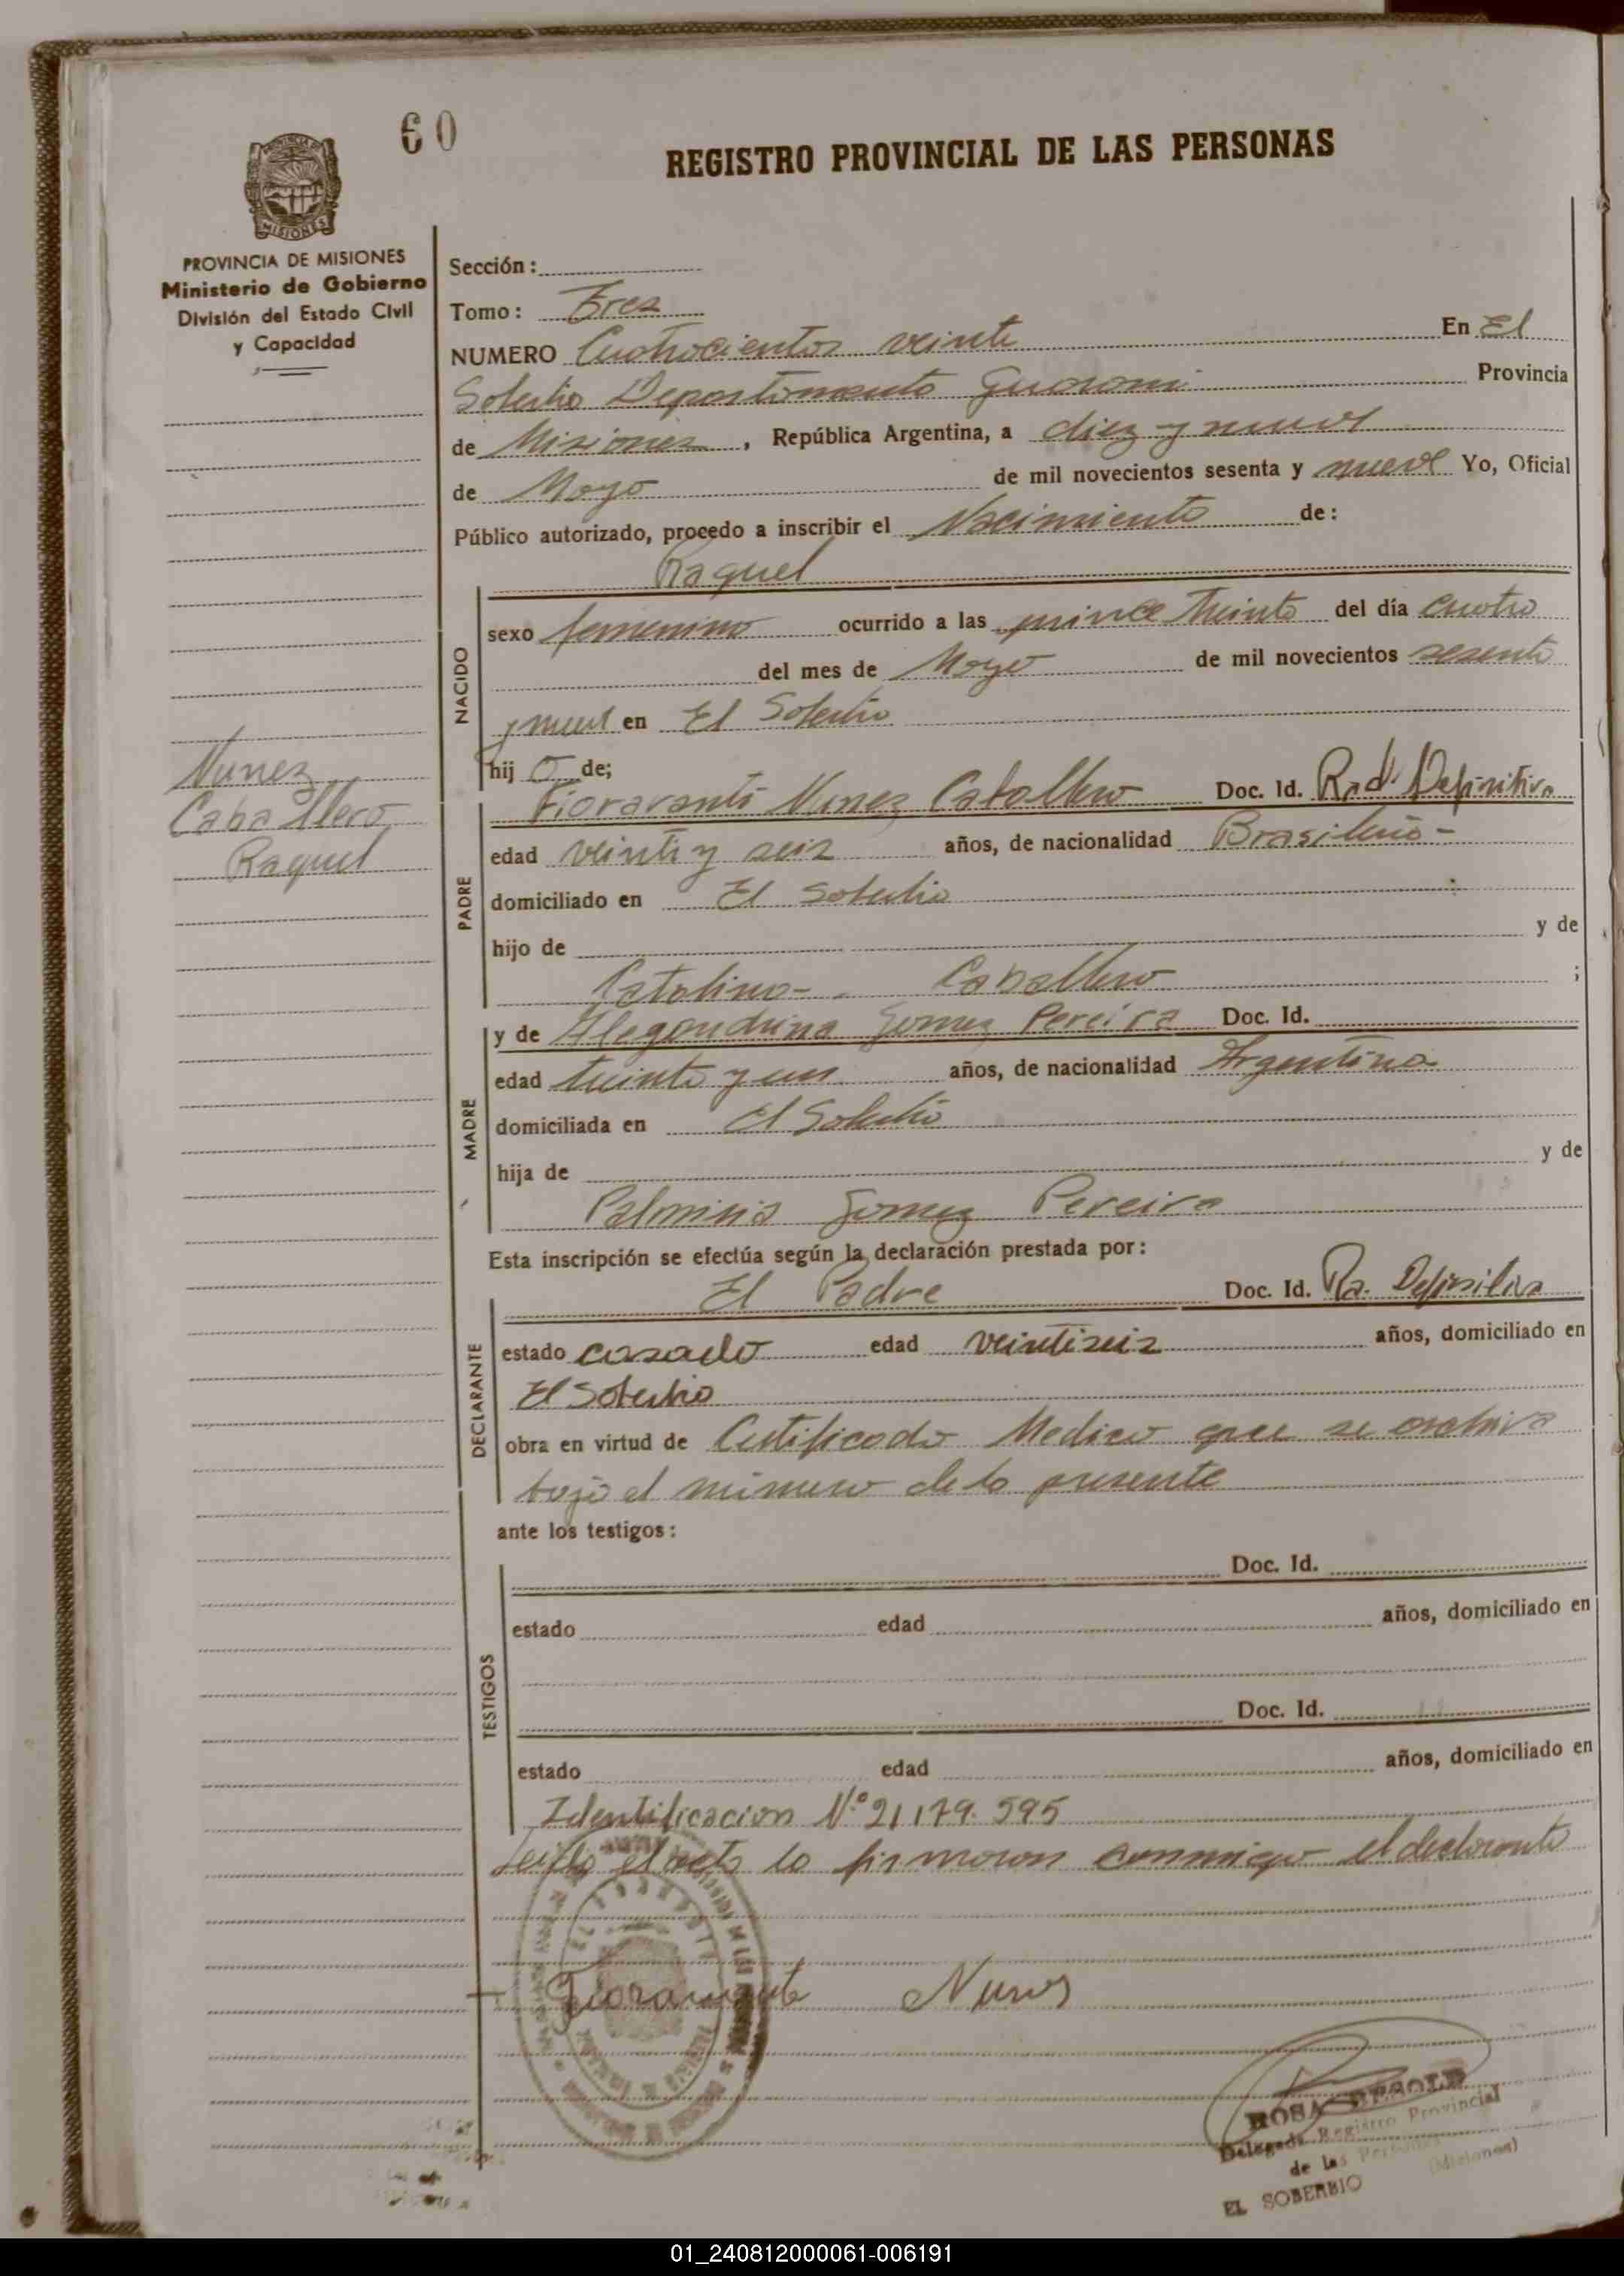 60
REGISTRO PROVINCIAL DE LAS PERSONAS
MISIONES
PROVINCIA DE MISIONES
Ministerio de Gobierno
División del Estado Civil
y Capacidad
Sección:
Tomo: Tres
NUMERO Cuatrocientos veinte En El
Soberbio Departamento Guarani Provincia
de Misiones, República Argentina, a diez y nueve
de Mayo de mil novecientos sesenta y nueve Yo, Oficial
Público autorizado, procedo a inscribir el Nacimiento de:
Raquel
NACIDO
sexo femenino ocurrido a las quince treinta del día cuatro
del mes de Mayo de mil novecientos sesenta
y nueve en El Soberbio
hij a de;
Nunez
Caballero
Raquel
PADRE
Fioravanti Nunez Caballero Doc. Id. Rad. Definitiva
edad veinti y seis años, de nacionalidad Brasileño-
domiciliado en El Soberbio
hijo de y de
Catalina- Caballero ;
MADRE
y de Alegandrina Gomez Pereira Doc. Id.
edad treinta y un años, de nacionalidad Argentina
domiciliada en El Soberbio
hija de y de
Gomez Pereira
Esta inscripción se efectúa según la declaración prestada por:
DECLARANTE
El Padre Doc. Id. Ra. Definitiva
estado casado edad veintiseis años, domiciliado en
El Soberbio
obra en virtud de Certificado Medico que se archiva
bajo el numero de la presente
ante los testigos:
TESTIGOS
Doc. Id.
estado edad años, domiciliado en
Doc. Id.
estado edad años, domiciliado en
Identificacion N.° 21 179. 595
Leida el acta la firmaron conmigo el declarante
Nunes
ROSA
Delegada Registro Provincial
de las Personas
EL SOBERBIO (Misiones)
01_240812000061-006191